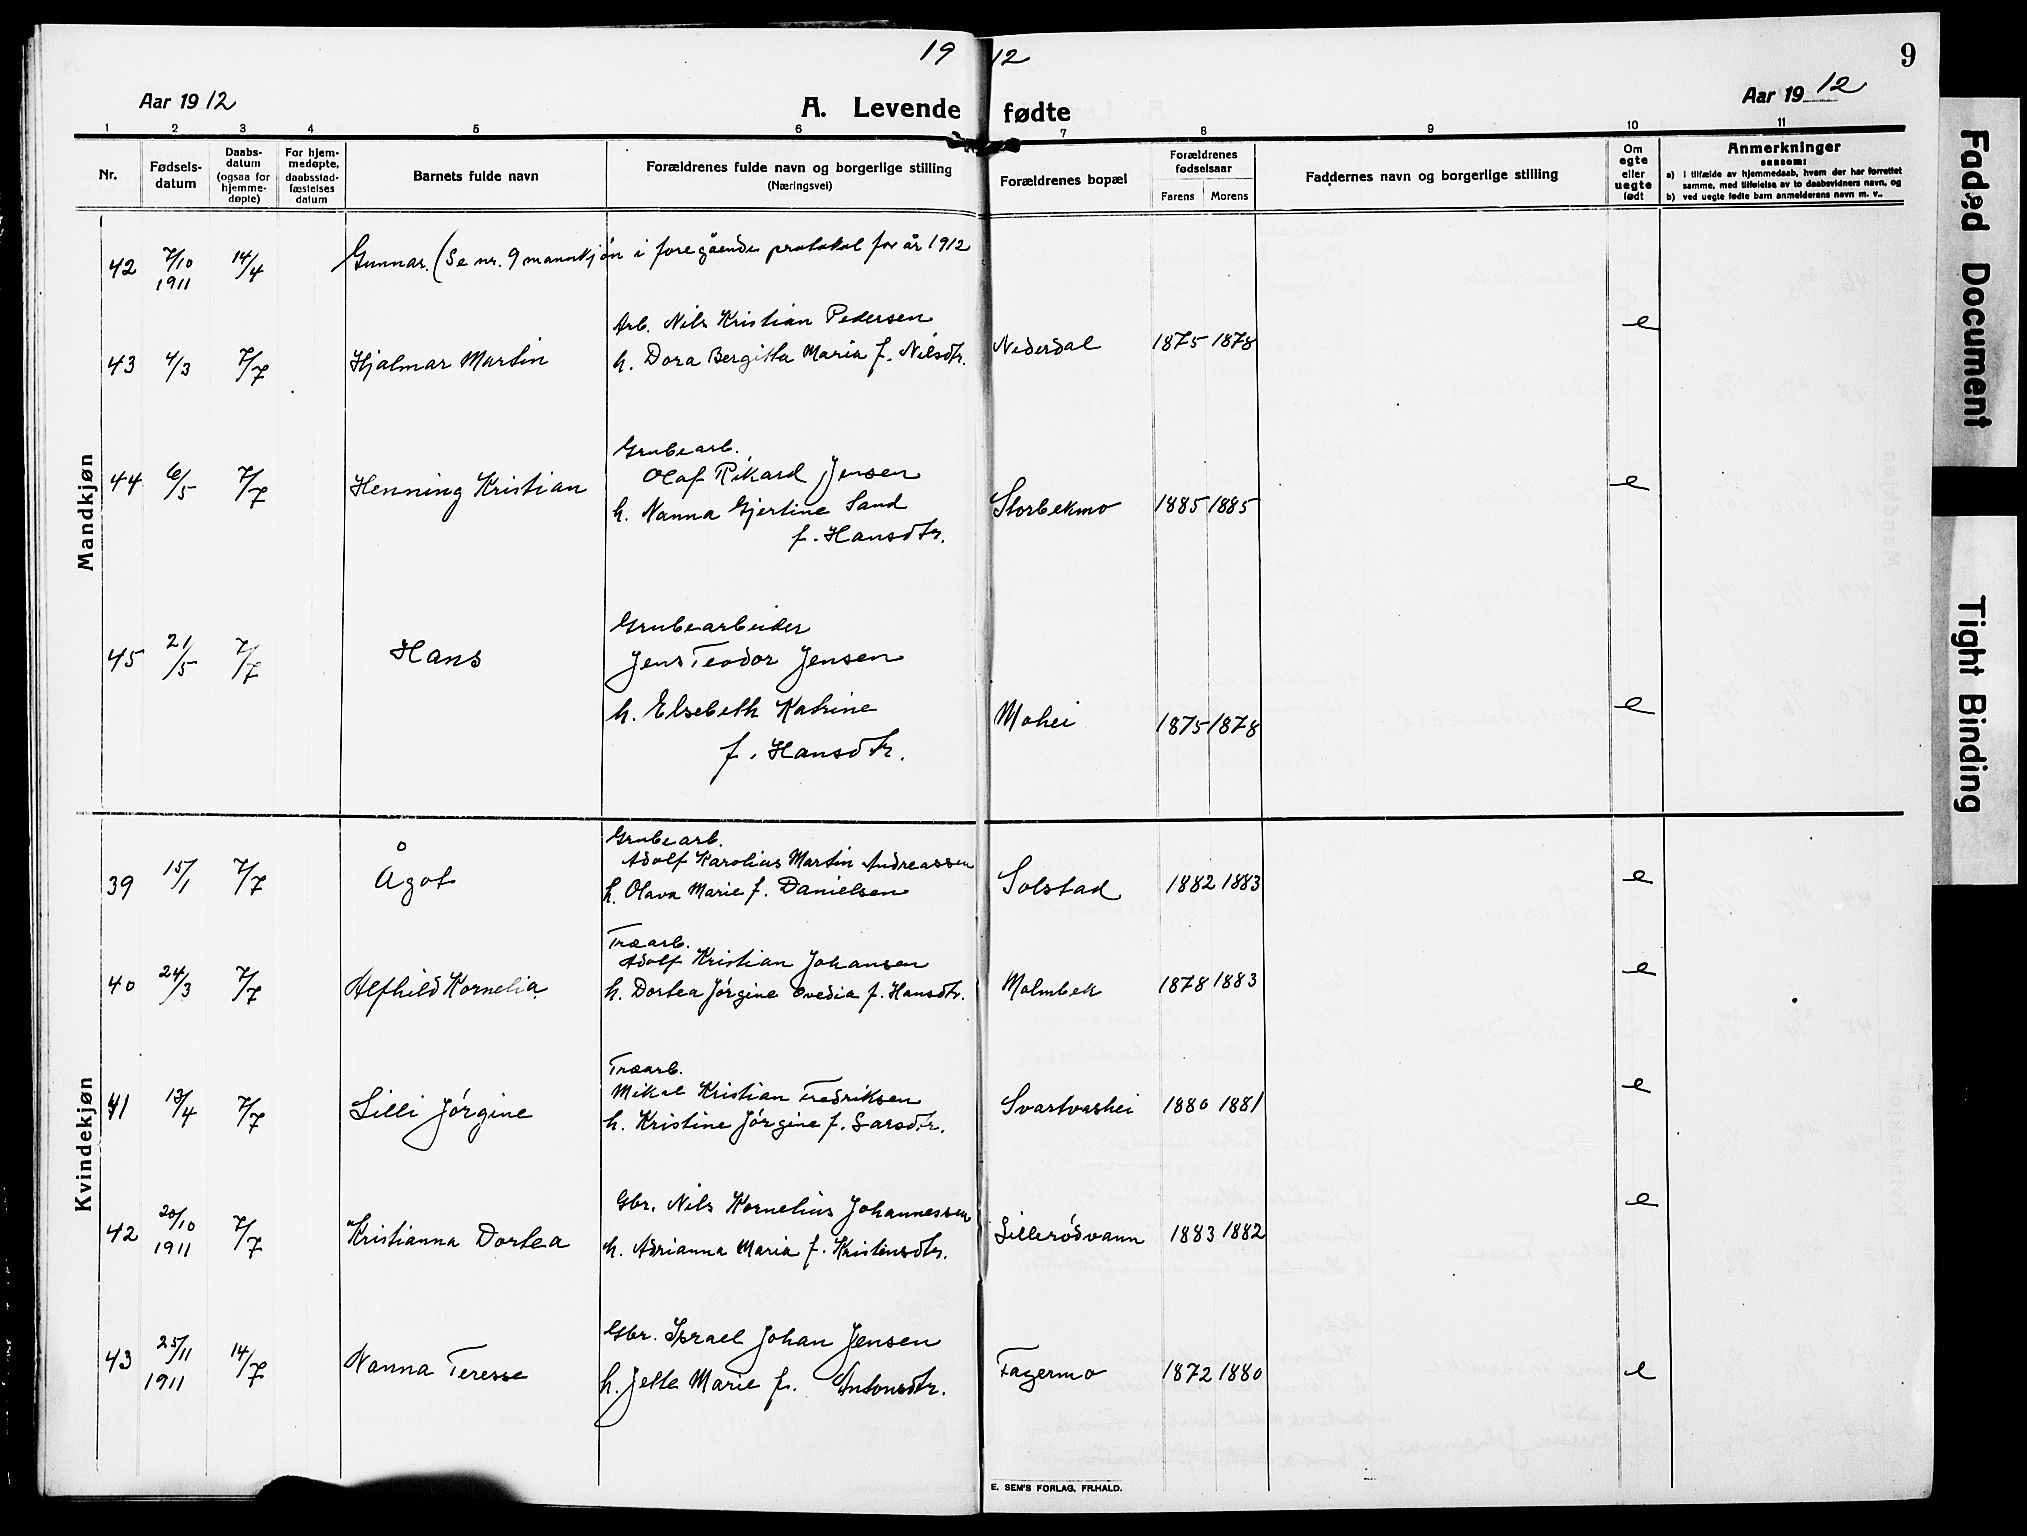 19 12
9
Aar 1912
A. Levende fødte
Aar 1912
1 2 3 4 5 6 7 8 9 10 11
Nr.
Fødsels-
datum
Daabs-
datum
(ogsaa for
hjemme-
døpte)
For hjem-
medøpte,
daabsstad-
fæstelses
datum
Barnets fulde navn
Forældrenes fulde navn og borgerlige stilling
(Næringsvei)
Forældrenes bopæl
Forældrenes
fødselsaar
Farens Morens
Faddernes navn og borgerlige stilling
Om
egte
eller
uegte
født
Anmerkninger
sansom:
a) i tilfælde av hjemmedaab, hvem der har forrettet
samme, med tilføielse av to daabsvidners navn, og
b) ved uegte fødte barn anmelderens navn m. v..
Mandkjøn
42 7/10 1911 14/4 Gunnar. (Se nr. 9 mannkjøn i foregående protokol for år 1912
43 4/3 7/7 Hjalmar Martin
Arb. Nils Kristian Pedersen
h. Dora Bergitta Maria f. Nilsdtr.
Nederdal 1875 1878 e
44 6/5 7/7 Henning Kristian
Grubearb.
Olaf Rikard Jensen
h. Nanna Gjertine Sand
f. Hansdtr.
Storbekmo 1885 1885 e
45 21/5 7/7 Hans
Grubearbeider
Jens Teodor Jensen
h. Elsebeth Katrine
f. Hansdtr.
Mohei 1875 1878 e
Kvindekjøn
39 15/1 7/7 Ågot
Grubearb.
Adolf Karolius Martin Andreassen
h. Olava Marie f. Danielsen
Solstad 1882 1883 e
40 24/3 7/7 Alfhild Kornelia
Træarb.
Adolf Kristian Johansen
h. Dortea Jørgine Ovedia f. Hansdtr.
Malmbek 1878 1883 e
41 13/4 7/7 Lilli Jørgine
Træarb.
Mikal Kristian Fredriksen
h. Kristine Jørgine f. Larsdtr.
Svartvashei 1880 1881 e
42 20/10 1911 7/7 Kristianna Dortea
Gbr. Nils Kornelius Johannessen
h. Adrianna Maria f. Kristensdtr.
Lillerødvann 1883 1882 e
43 25/11 1911 14/7 Nanna Teresse
Gbr. Israel Johan Jensen
h. Jelle Marie f. Antonsdtr.
Fagermo 1872 1880 e
E. SEM'S FORLAG, FR.HALD.
Faded Document
Tight Binding